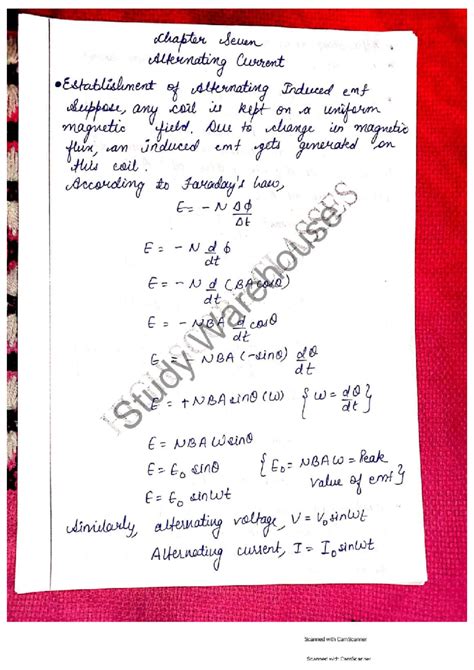 Chapter Seven
Alternating Current
•Establishment of Alternating Induced emf
Suppose, any coil is kept on a uniform
magnetic field. Due to change in magnetic
flux, an induced emf gets generated on
this coil.
According to Faraday's Law,
E = - N ΔΦ/Δt
E = - N d/dt ϕ
E = - N d/dt (BA cosθ)
E = - NBA d/dt cosθ
E = - NBA (-sinθ) dθ/dt
E = + NBA sinθ (W) { W = dθ/dt }
E = NBA W sinθ
E = E₀ sinθ { E₀ = NBAW = Peak
value of emf }
E = E₀ sinWt
Similarly, alternating voltage, V = V₀ sinWt
Alternating current, I = I₀ sinWt
Study Warehouse
CLASSES
Scanned with CamScanner
Scanned with CamScanner